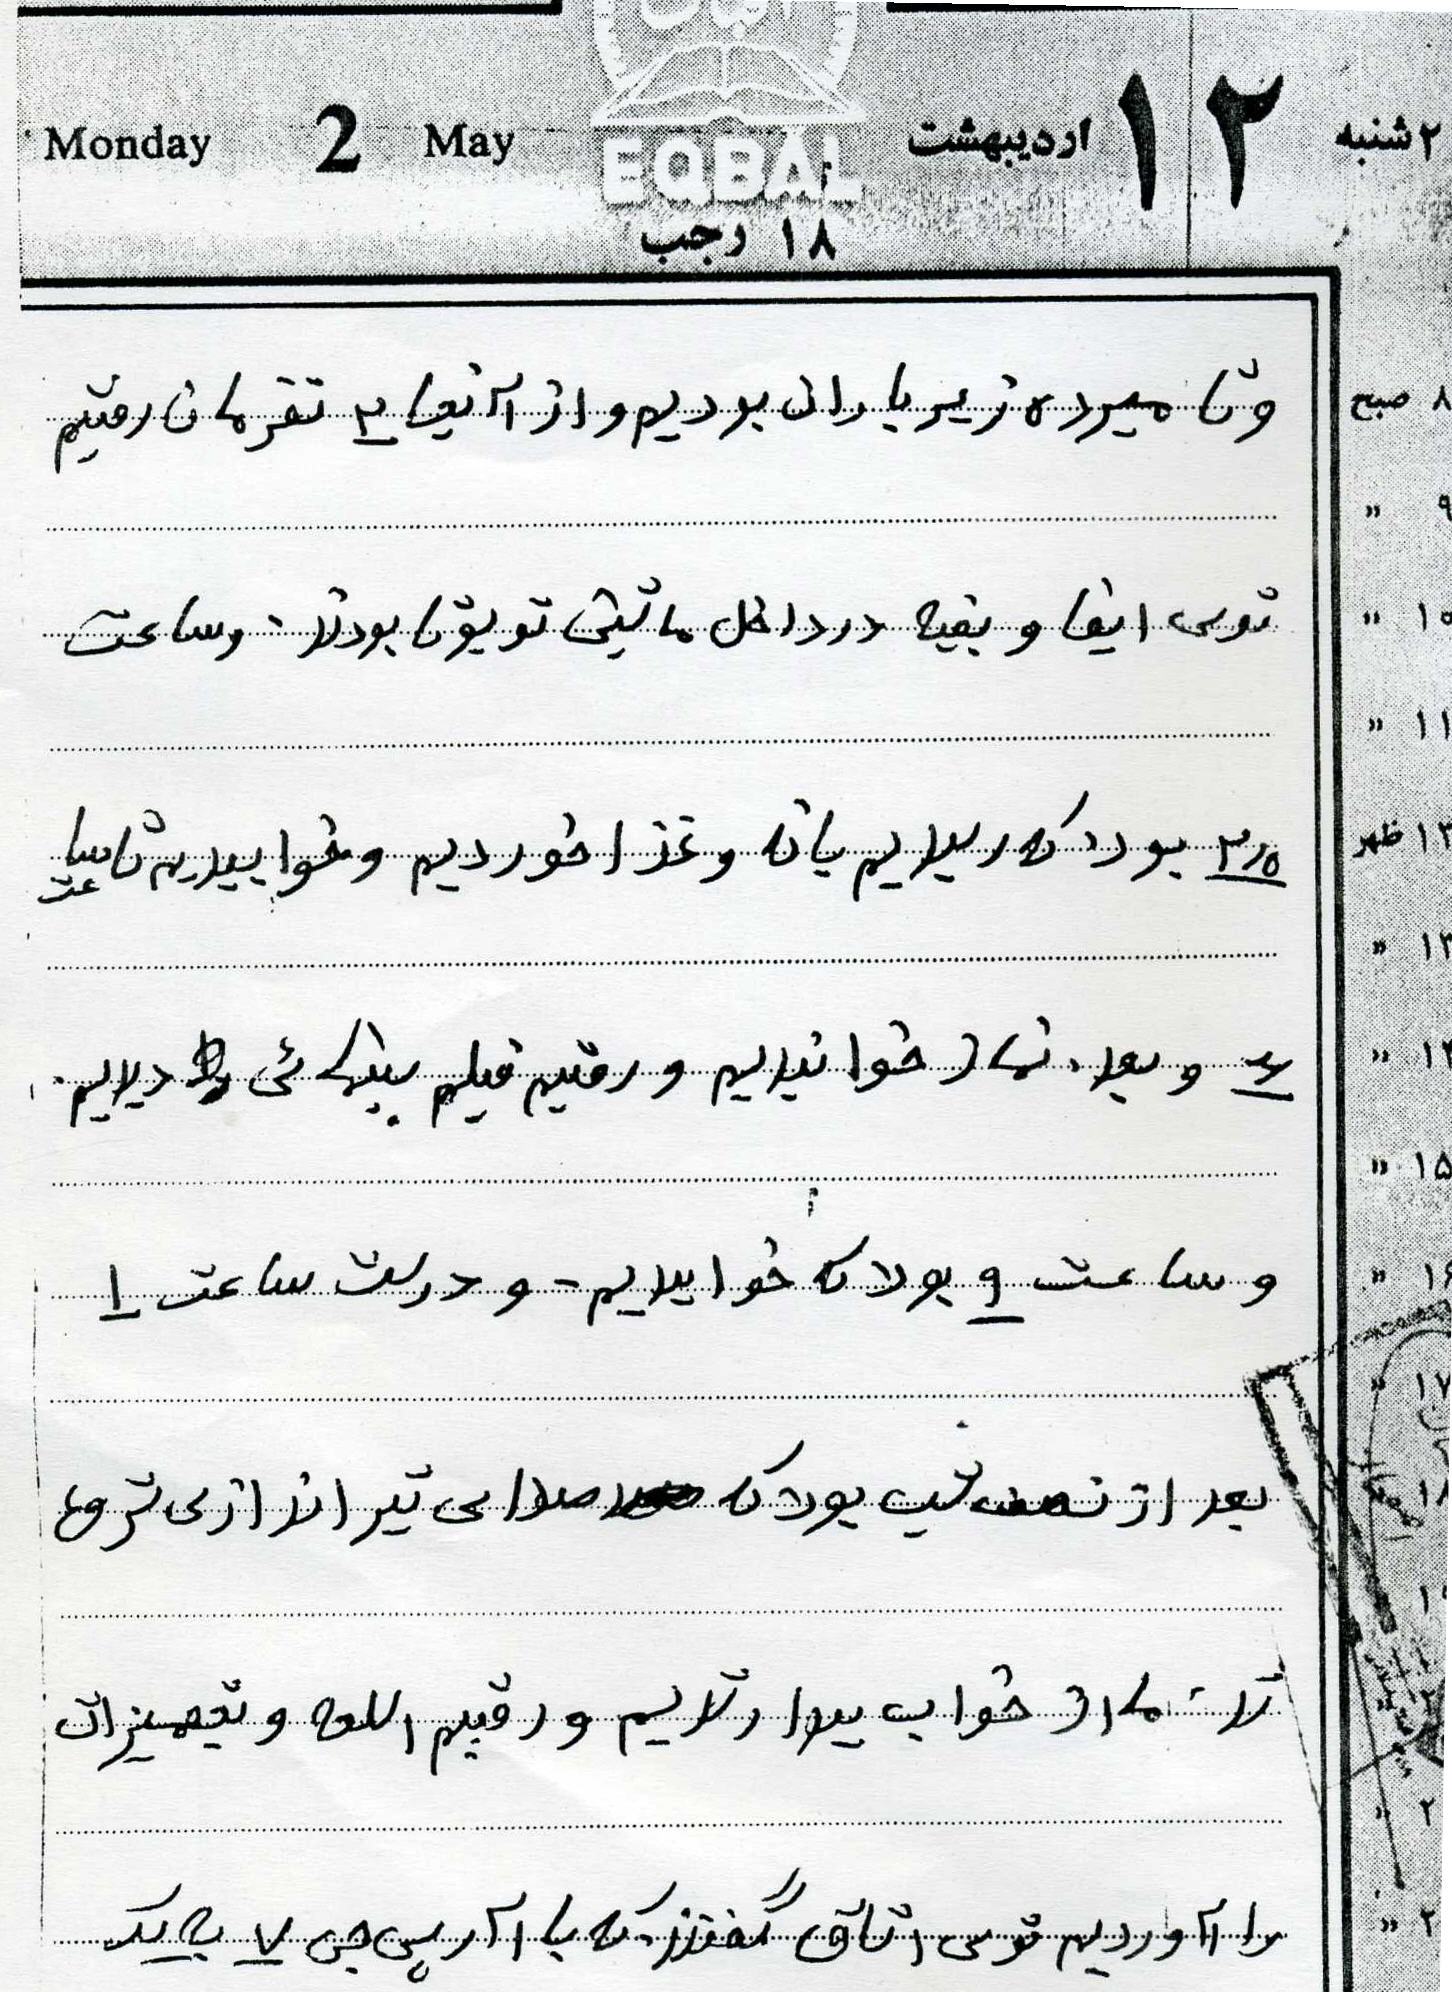 Monday 2 May
EQBAL
۲شنبه ۱۲ اردیبهشت
۱۸ رجب
۸ صبح
۹ »
۱۰ »
۱۱ »
۱۲ ظهر
۱۳ »
۱۴ »
۱۵ »
۱۶ »
۱۷ »
۱۸
و تا میرده زیر باران بودیم و از آنجا ۲ نفرمان رفتیم
توی ایفا و بقیه در داخل ماشین تویوتا بودند. وساعت
۳٫۵ بود که رسیدیم بانه و غذا خوردیم و خوابیدیم تا ساعت
۶ و بعد نماز خواندیم و رفتیم فیلم سینمائی دیدیم.
و ساعت ۹ بود که خوابیدیم - و درست ساعت ۱
بعد از نصف شب بود که صدای تیراندازی شروع
شد. ما از خواب بیدار شدیم و رفتیم اسلحه و تجهیزات
را آوردیم توی اتاق گفتند که با آر پی جی ۷ به یک